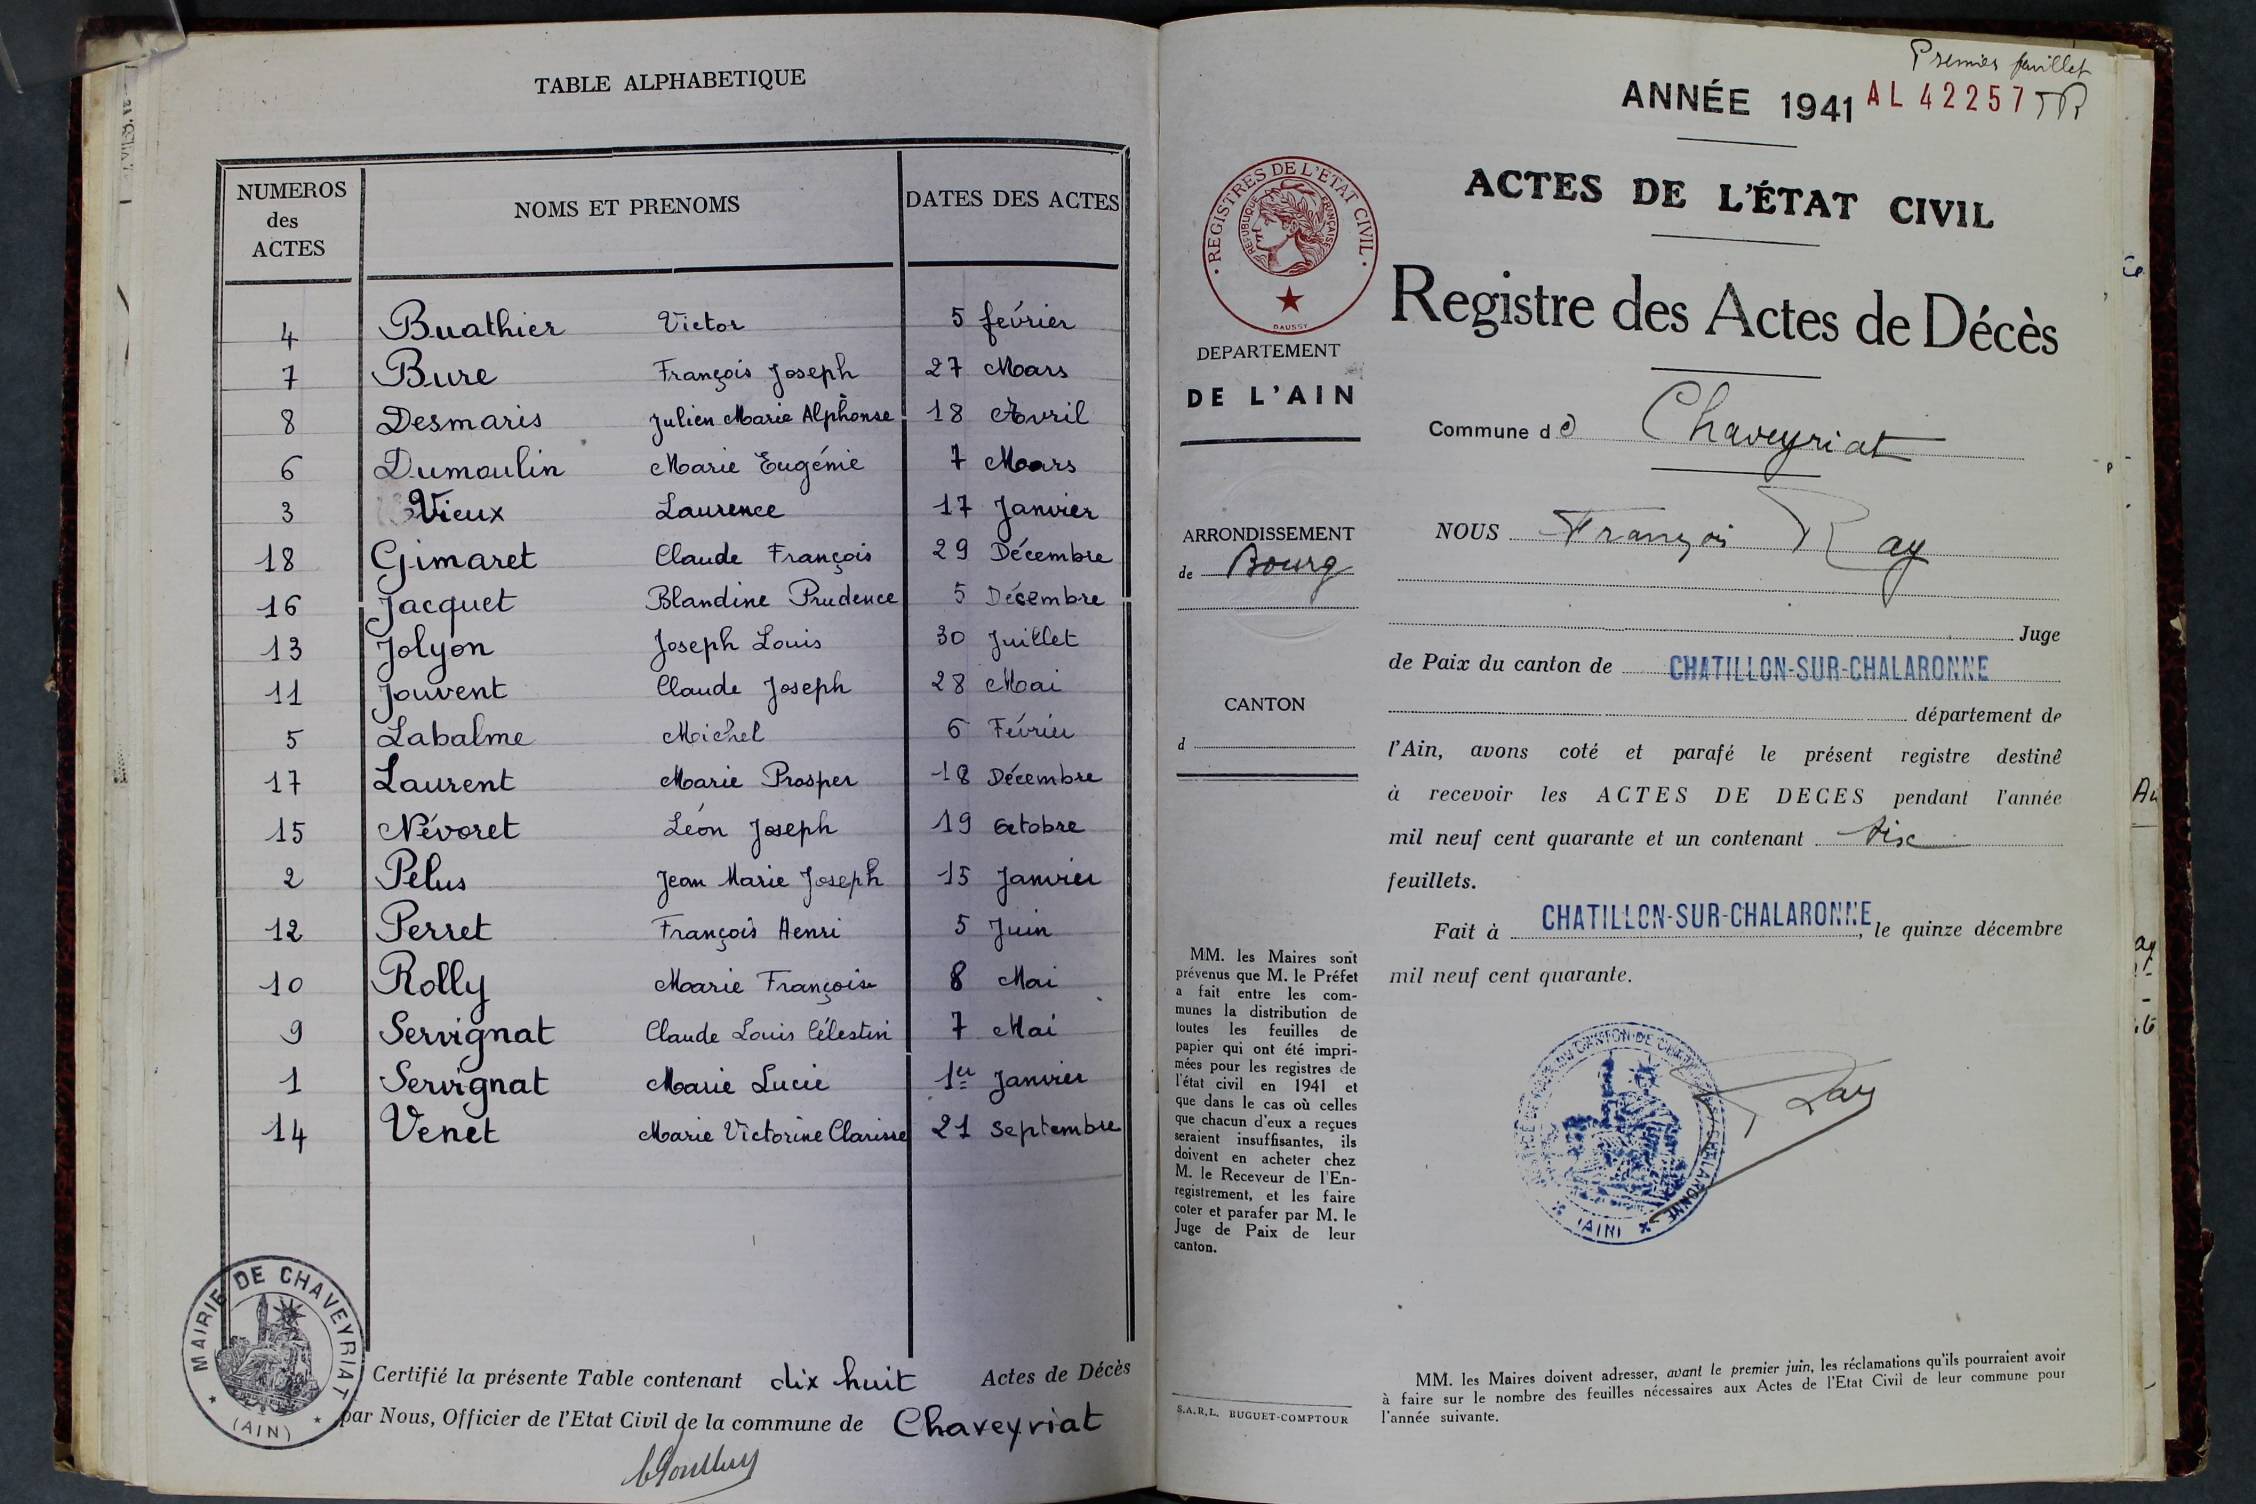 TABLE ALPHABETIQUE
NUMEROS des ACTES NOMS ET PRENOMS DATES DES ACTES
4 Buathier Victor 5 février
7 Bure François Joseph 27 Mars
8 Desmaris Julien Marie Alphonse 18 Avril
6 Dumoulin Marie Eugénie 7 Mars
3 Vieux Laurence 17 Janvier
18 Gimaret Claude François 29 Décembre
16 Jacquet Blandine Prudence 5 Décembre
13 Jolyon Joseph Louis 30 Juillet
11 Jouvent Claude Joseph 28 Mai
5 Labalme Michel 6 Février
17 Laurent Marie Prosper 18 Décembre
15 Névoret Léon Joseph 19 Octobre
2 Pelus Jean Marie Joseph 15 Janvier
12 Perret François Henri 5 Juin
10 Rolly Marie Françoise 8 Mai
9 Servignat Claude Louis Célestin 7 Mai
1 Servignat Marie Lucie 1er Janvier
14 Venet Marie Victorine Clarisse 21 Septembre
MAIRIE DE CHAVEYRIAT
(AIN)
Certifié la présente Table contenant dix huit Actes de Décès
par Nous, Officier de l'Etat Civil de la commune de Chaveyriat
Premier feuillet
ANNÉE 1941 AL 42257
ACTES DE L'ÉTAT CIVIL
Registre des Actes de Décès
REGISTRES DE L'ETAT CIVIL
REPUBLIQUE FRANÇAISE
DAUSSY
DEPARTEMENT
DE L'AIN
Commune de Chaveyriat
ARRONDISSEMENT
de Bourg
CANTON
d
NOUS François Ray
Juge
de Paix du canton de CHATILLON-SUR-CHALARONNE
département de
l'Ain, avons coté et parafé le présent registre destiné
à recevoir les ACTES DE DECES pendant l'année
mil neuf cent quarante et un contenant six
feuillets.
Fait à CHATILLON-SUR-CHALARONNE, le quinze décembre
mil neuf cent quarante.
Ray
(AIN)
MM. les Maires sont
prévenus que M. le Préfet
a fait entre les com-
munes la distribution de
toutes les feuilles de
papier qui ont été impri-
mées pour les registres de
l'état civil en 1941 et
que dans le cas où celles
que chacun d'eux a reçues
seraient insuffisantes, ils
doivent en acheter chez
M. le Receveur de l'En-
registrement, et les faire
coter et parafer par M. le
Juge de Paix de leur
canton.
S.A.R.L. BUGUET-COMPTOUR
MM. les Maires doivent adresser, avant le premier juin, les réclamations qu'ils pourraient avoir
à faire sur le nombre des feuilles nécessaires aux Actes de l'Etat Civil de leur commune pour
l'année suivante.